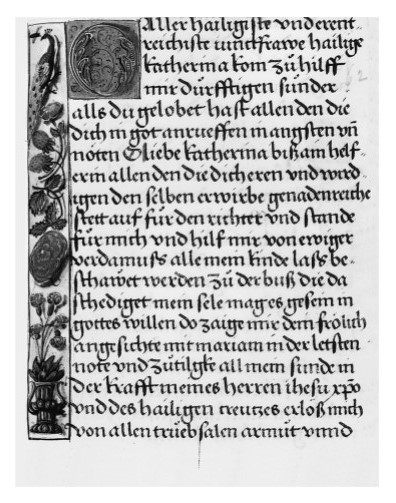 O Aller hailigiste vnd erent-
reichiste iunckfrawe hailige
katherina kom zů hilff
mir dürfftigen sünder
alls du gelobet hast allen den die
dich in got anrueffen in angsten vn̄
nöten O liebe katherina biß ain helf-
erin allen den die dich eren vnd werd-
igen den selben erwirbe genadenreiche
stett auf für den richter vnd stande
für mich vnd hilf mir von ewiger
verdamuss alle mein sünde lass be-
schawet werden zů der buß die da
schediget mein sele mag es gesein in
gottes willen do zaige mir dein frölich
angesichte mit mariam in der letsten
note vnd zůtilgke all mein sünde in
der krafft meines herren ihesu xp̄o
vnd des hailigen creutzes erlöß mich
von allen trüebsalen armut vnnd